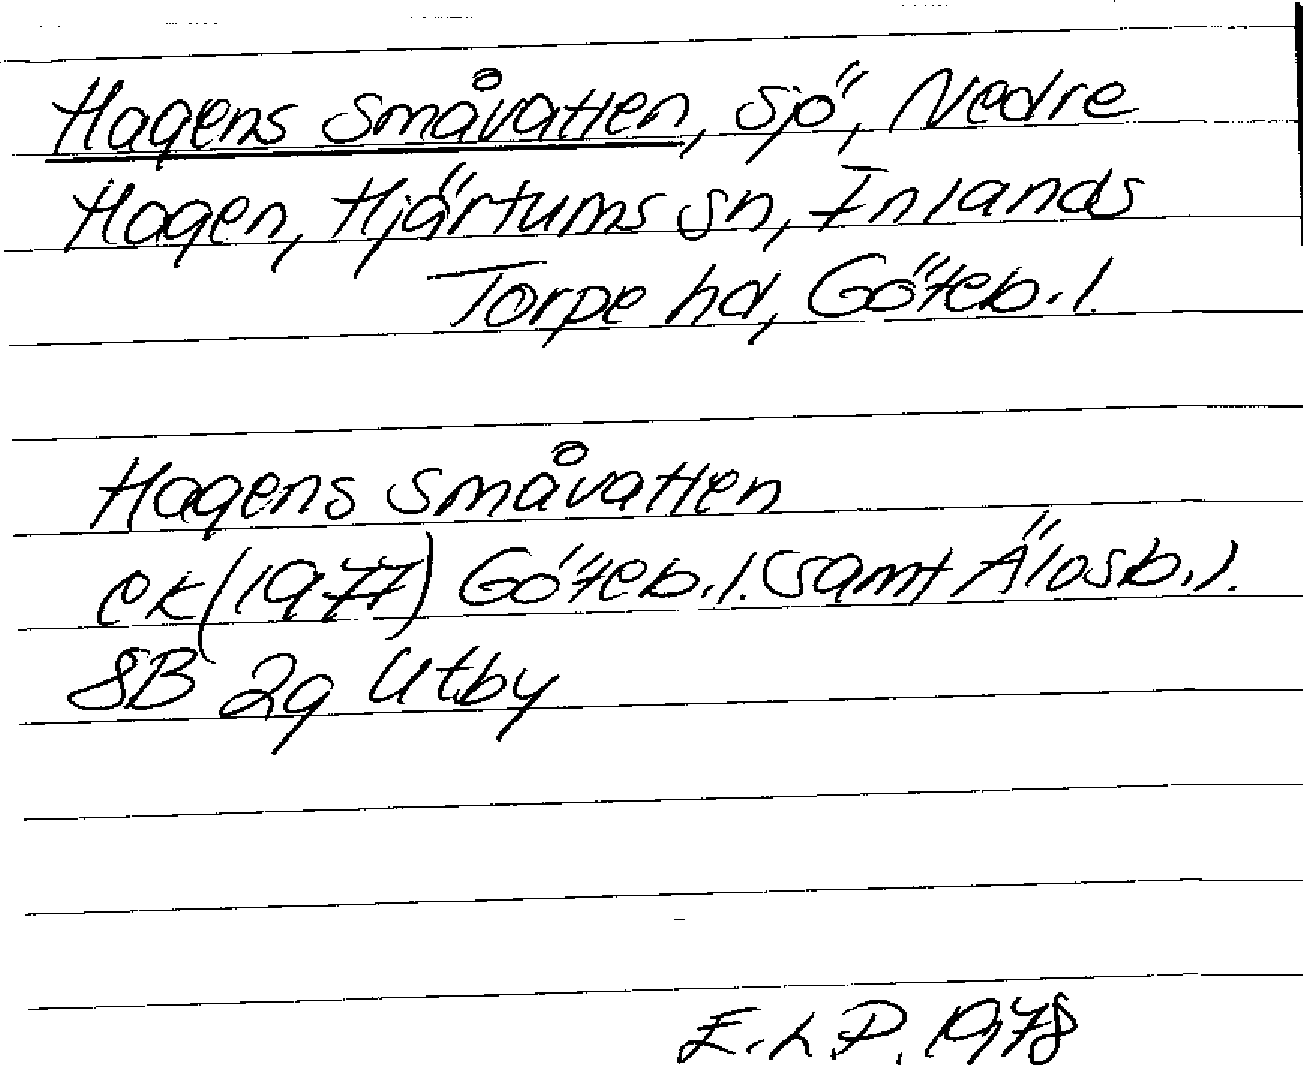 Hagens Småvatten, sjö, Nedre
Hagen, Hjärtums sn, Inlands
Torpe hd, Göteb. l.
Hagens Småvatten
ek (1977) Göteb. l. samt Älvsb. l.
8B 2g Utby
E. L. P. 1978